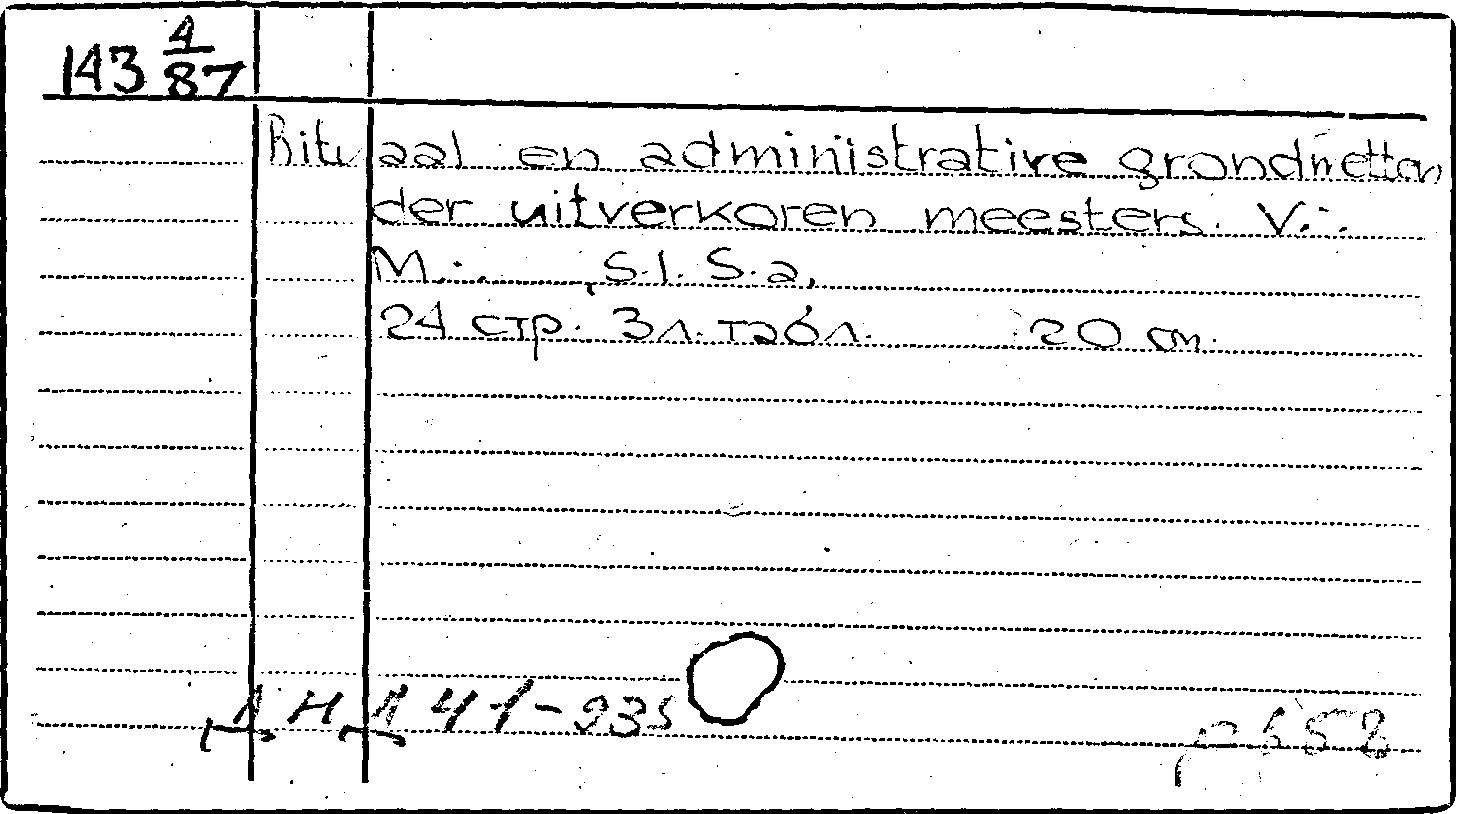 143 4/87
Rituaal en administrative grondwetten
der uitverkoren meesters. V∴
M∴ , S.l. S.a,
24 стр. 3 л. табл. 20 см.
ДНД 41-935
р 658